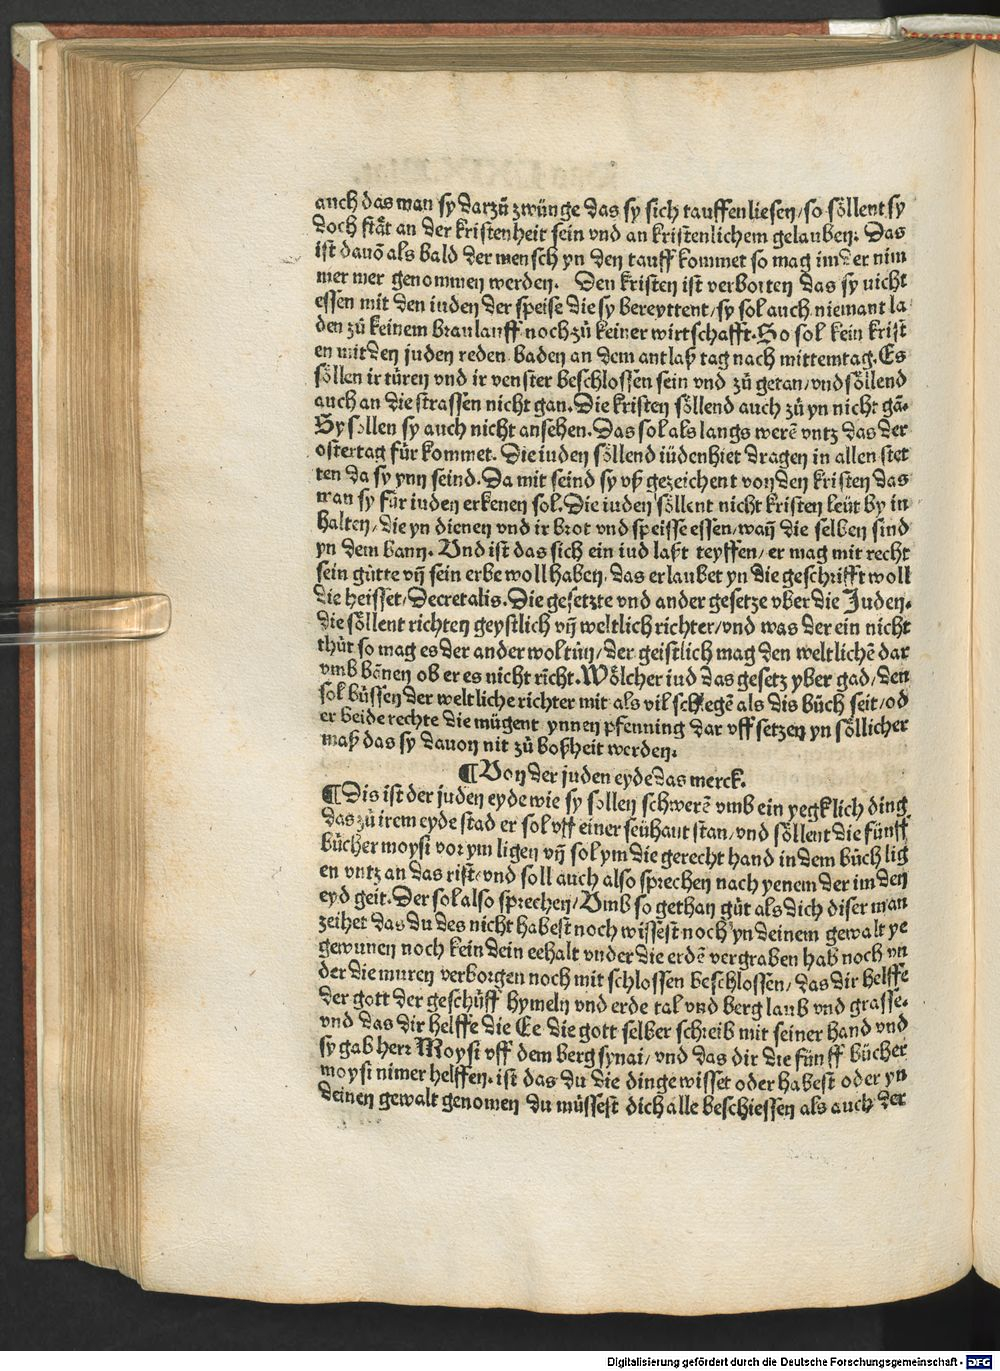 auch das man sy darzů zwünge das sy sich tauffen liesen/so söllent sy
doch stät an der kristenheit sein vnd an kristenlichem gelauben. Das
ist dauō als bald der mensch yn den tauff kommet so mag im der nim
mer mer genommen werden. Den kristen ist verbotten das sy nicht
essen mit den iuden der speise die sy bereyttent/sy sol auch niemant la
den zů keinem braulauff noch zů keiner wirtschafft. So sol kein krist
en mit den juden reden baden an dem antlaß tag nach mittemtag. Es
söllen ir türen vnd ir venster beschlossen sein vnd zů getan/vnd söllend
auch an die strassen nicht gan. Die kristen söllend auch zů yn nicht gā.
Sy sollen sy auch nicht ansehen. Das sol als langs werē vntz das der
ostertag für kommet. Die iuden söllend iüdenhiet dragen in allen stet
ten da sy ynn seind. Da mit seind sy vß gezeichent von den kristen das
man sy für iuden erkenen sol. Die iuden söllent nicht kristen leüt by in
halten/die yn dienen vnd ir brot vnd speisse essen/wañ die selben sind
yn dem bann. Vnd ist das sich ein iud laßt teyffen/er mag mit recht
sein gütte vñ sein erbe woll haben. das erlaubet yn die geschrifft woll
die heisset/Decretalis. Die gesetzte vnd ander gesetze vber die Juden.
die söllent richten geystlich vñ weltlich richter/vnd was der ein nicht
thůt so mag es der ander wol tůn/der geistlich mag den weltlichē dar
vmb bānen ob er es nicht richt. Wölcher iud das gesetz yber gad/den
sol büssen der weltliche richter mit als vil schlegē als dis bůch seit/od
er beide rechte die mügent ynnen pfenning dar vff setzen yn söllicher
maß das sy dauon nit zů boßheit werden.
¶ Von der juden eyde das merck.
¶ Dis ist der juden eyde wie sy sollen schwerē vmb ein yegklich ding
das zů irem eyde stad er sol vff einer seühaut stan/vnd söllent die fünff
bůcher moysi vor ym ligen vñ sol ym die gerecht hand in dem bůch lig
en vntz an das rist/vnd soll auch also sprechen nach yenem der im den
eyd geit. Der sol also sprechen/Vmb so gethan gůt als dich diser man
zeihet das du des nicht habest noch wissest noch yn deinem gewalt ye
gewunen noch kein dein eehalt vnder die erdē vergraben hab noch vn
der die muren verborgen noch mit schlossen beschlossen/das dir helffe
der gott der geschůff hymeln vnd erde tal vnd berg laub vnd grasse.
vnd das dir helffe die Ee die gott selber schreib mit seiner hand vnd
sy gab herr Moysi vff dem berg synai/vnd das dir die fünff bücher
moysi nimer helffen. ist das du die dinge wisset oder habest oder yn
deinen gewalt genomen du müssest dich alle beschiessen als auch der
Digitalisierung gefördert durch die Deutsche Forschungsgemeinschaft - DFG